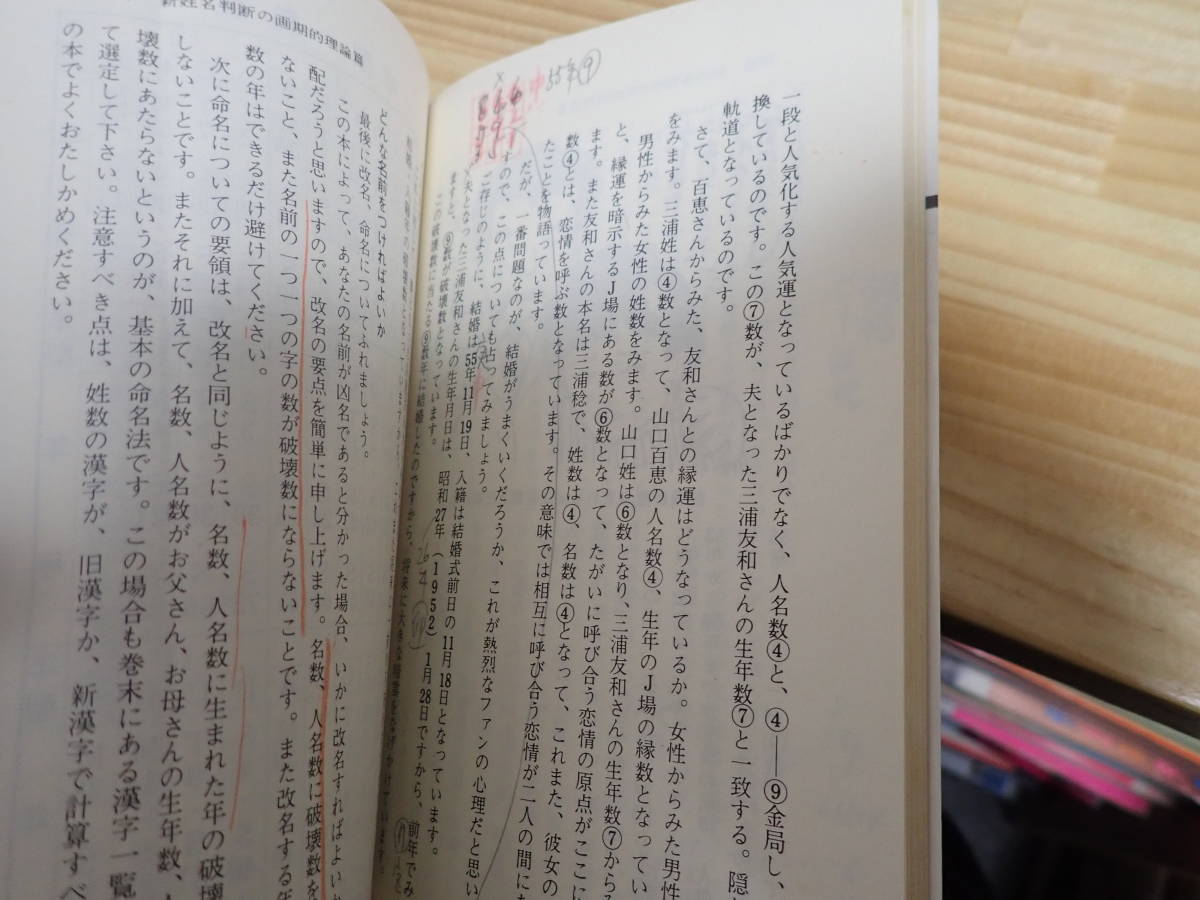 一段と人気化する人気運となっているばかりでなく、人名数④と、④――⑨金局し、
換しているのです。この⑦数が、夫となった三浦友和さんの生年数⑦と一致する。隠
軌道となっているのです。
さて、百恵さんからみた、友和さんとの縁運はどうなっているか。女性からみた男
をみます。三浦姓は④数となって、山口百恵の人名数④、生年のJ場の縁数となってい
男性からみた女性の姓数をみます。山口姓は⑥数となり、三浦友和さんの生年数⑦から
と、縁運を暗示するJ場にある数が⑥数となって、たがいに呼び合う恋情の原点がここに
ます。また友和さんの本名は三浦稔で、姓数は④、名数は④となって、これまた、彼女の
数④とは、恋情を呼ぶ数となっています。その意味では相互に呼び合う恋情が二人の間に
たことを物語っています。
だが、一番問題なのが、結婚がうまくいくだろうか、これが熱烈なファンの心理だと思い
すので、この点についても占ってみましょう。
ご存じのように、結婚は55年11月19日、入籍は結婚式前日の11月18日となっています。
夫となった三浦友和さんの生年月日は、昭和27年(1952)1月28日ですから、前年でみ
ますと、⑨数が破壊数となっています。
この破壊数に当たる⑨数年に結婚したのですから、将来に大きな暗雲をなげかけています。
55年⑨
新姓名判断の画期的理論篇
どんな名前をつければよいか
最後に改名、命名についてふれましょう。
この本によって、あなたの名前が凶名であると分かった場合、いかに改名すればよいか
配だろうと思いますので、改名の要点を簡単に申し上げます。名数、人名数に破壊数を
ないこと、また名前の一つ一つの字の数が破壊数にならないことです。また改名する年
数の年はできるだけ避けてください。
次に命名についての要領は、改名と同じように、名数、人名数に生まれた年の破壊
しないことです。またそれに加えて、名数、人名数がお父さん、お母さんの生年数、
壊数にあたらないというのが、基本の命名法です。この場合も巻末にある漢字一覧
て選定して下さい。注意すべき点は、姓数の漢字が、旧漢字か、新漢字で計算すべ
の本でよくおたしかめください。